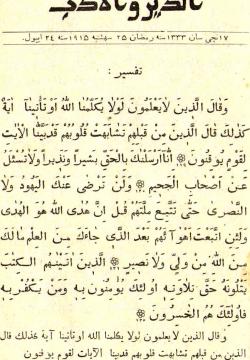 ١٧نجى سان ١٣٣٣سنه رمضان ٢٥ سهشنبه ١٩١٥سنه ٢٤ ايول.
تفسير :
وَقَالَ الَّذِينَ لَايَعْلَمُونَ لَوْلَا يُكَلِّمُنَا اللهُ اَوْتَأْتِينَا اٰيَةٌ
كَذٰلِكَ قَالَ الَّذِينَ مِنْ قَبْلِهِمْ تَشَابَهَتْ قُلُوبُهُمْ قَدْبَيَّنَّا الْاٰيٰتِ
لِقَوْمٍ يُوقِنُونَ اِنَّااَرْسَلْنٰكَ بِالْحَقِّ بَشِيرًا وَنَذِيرًا وَلَاتُسْئَلُ
عَنْ اَصْحَابِ الْجَحِيمِ وَلَنْ تَرْضٰى عَنْكَ الْيَهُودُ وَلَا
النَّصٰرٰى حَتّٰى تَتَّبِعَ مِلَّتَهُمْ قُلْ اِنَّ هُدَى اللهِ هُوَ الْهُدٰى
وَلَئِنِ اتَّبَعْتَ اَهْوَآءَهُمْ بَعْدَ الَّذِى جَاءَكَ مِنَ الْعِلْمِ مَا لَكَ
مِنَ اللهِ مِنْ وَلِىٍّ وَلَا نَصِيرٍ اَلَّذِينَ اٰتَيْنٰهُمُ الْكِتٰبَ
يَتْلُونَهُ حَقَّ تِلَاوَتِهِ اُولٰئِكَ يُؤْمِنُونَ بِهِ وَمَنْ يَكْفُرْ بِهِ
فَاُولٰئِكَ هُمُ الْخٰسِرُونَ
وقال الذين لايعلمون لولا يكلمنا الله اوتأتينا آية كذلك قال
الذين من قبلهم تشابهت قلوبهم قدبينا الآيات لقوم يوقنون